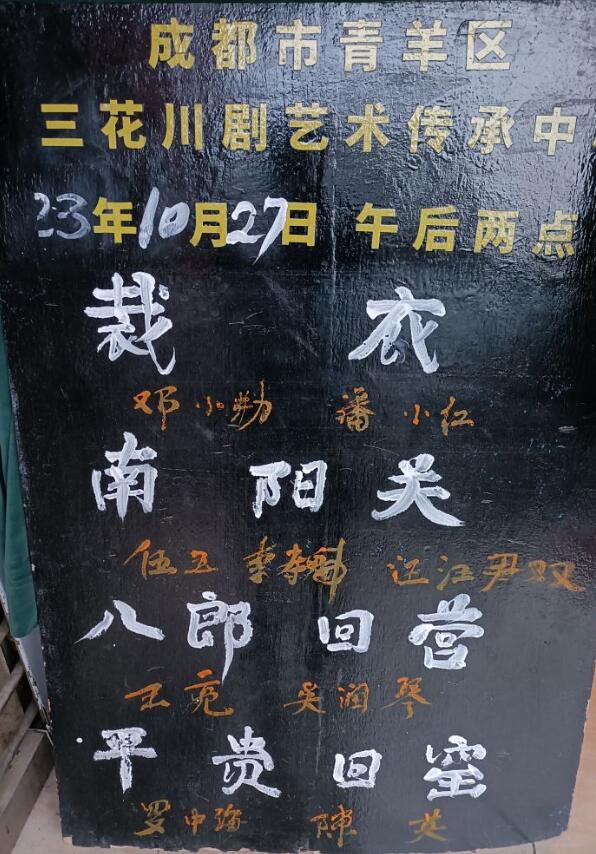 成都市青羊区
三花川剧艺术传承中
23年10月27日 午后两点
裁衣
邓小勤 潘小红
南阳关
伍五 李 汪江 尹双
八郎回营
王亮 吴润琴
平贵回窑
罗中 陈英